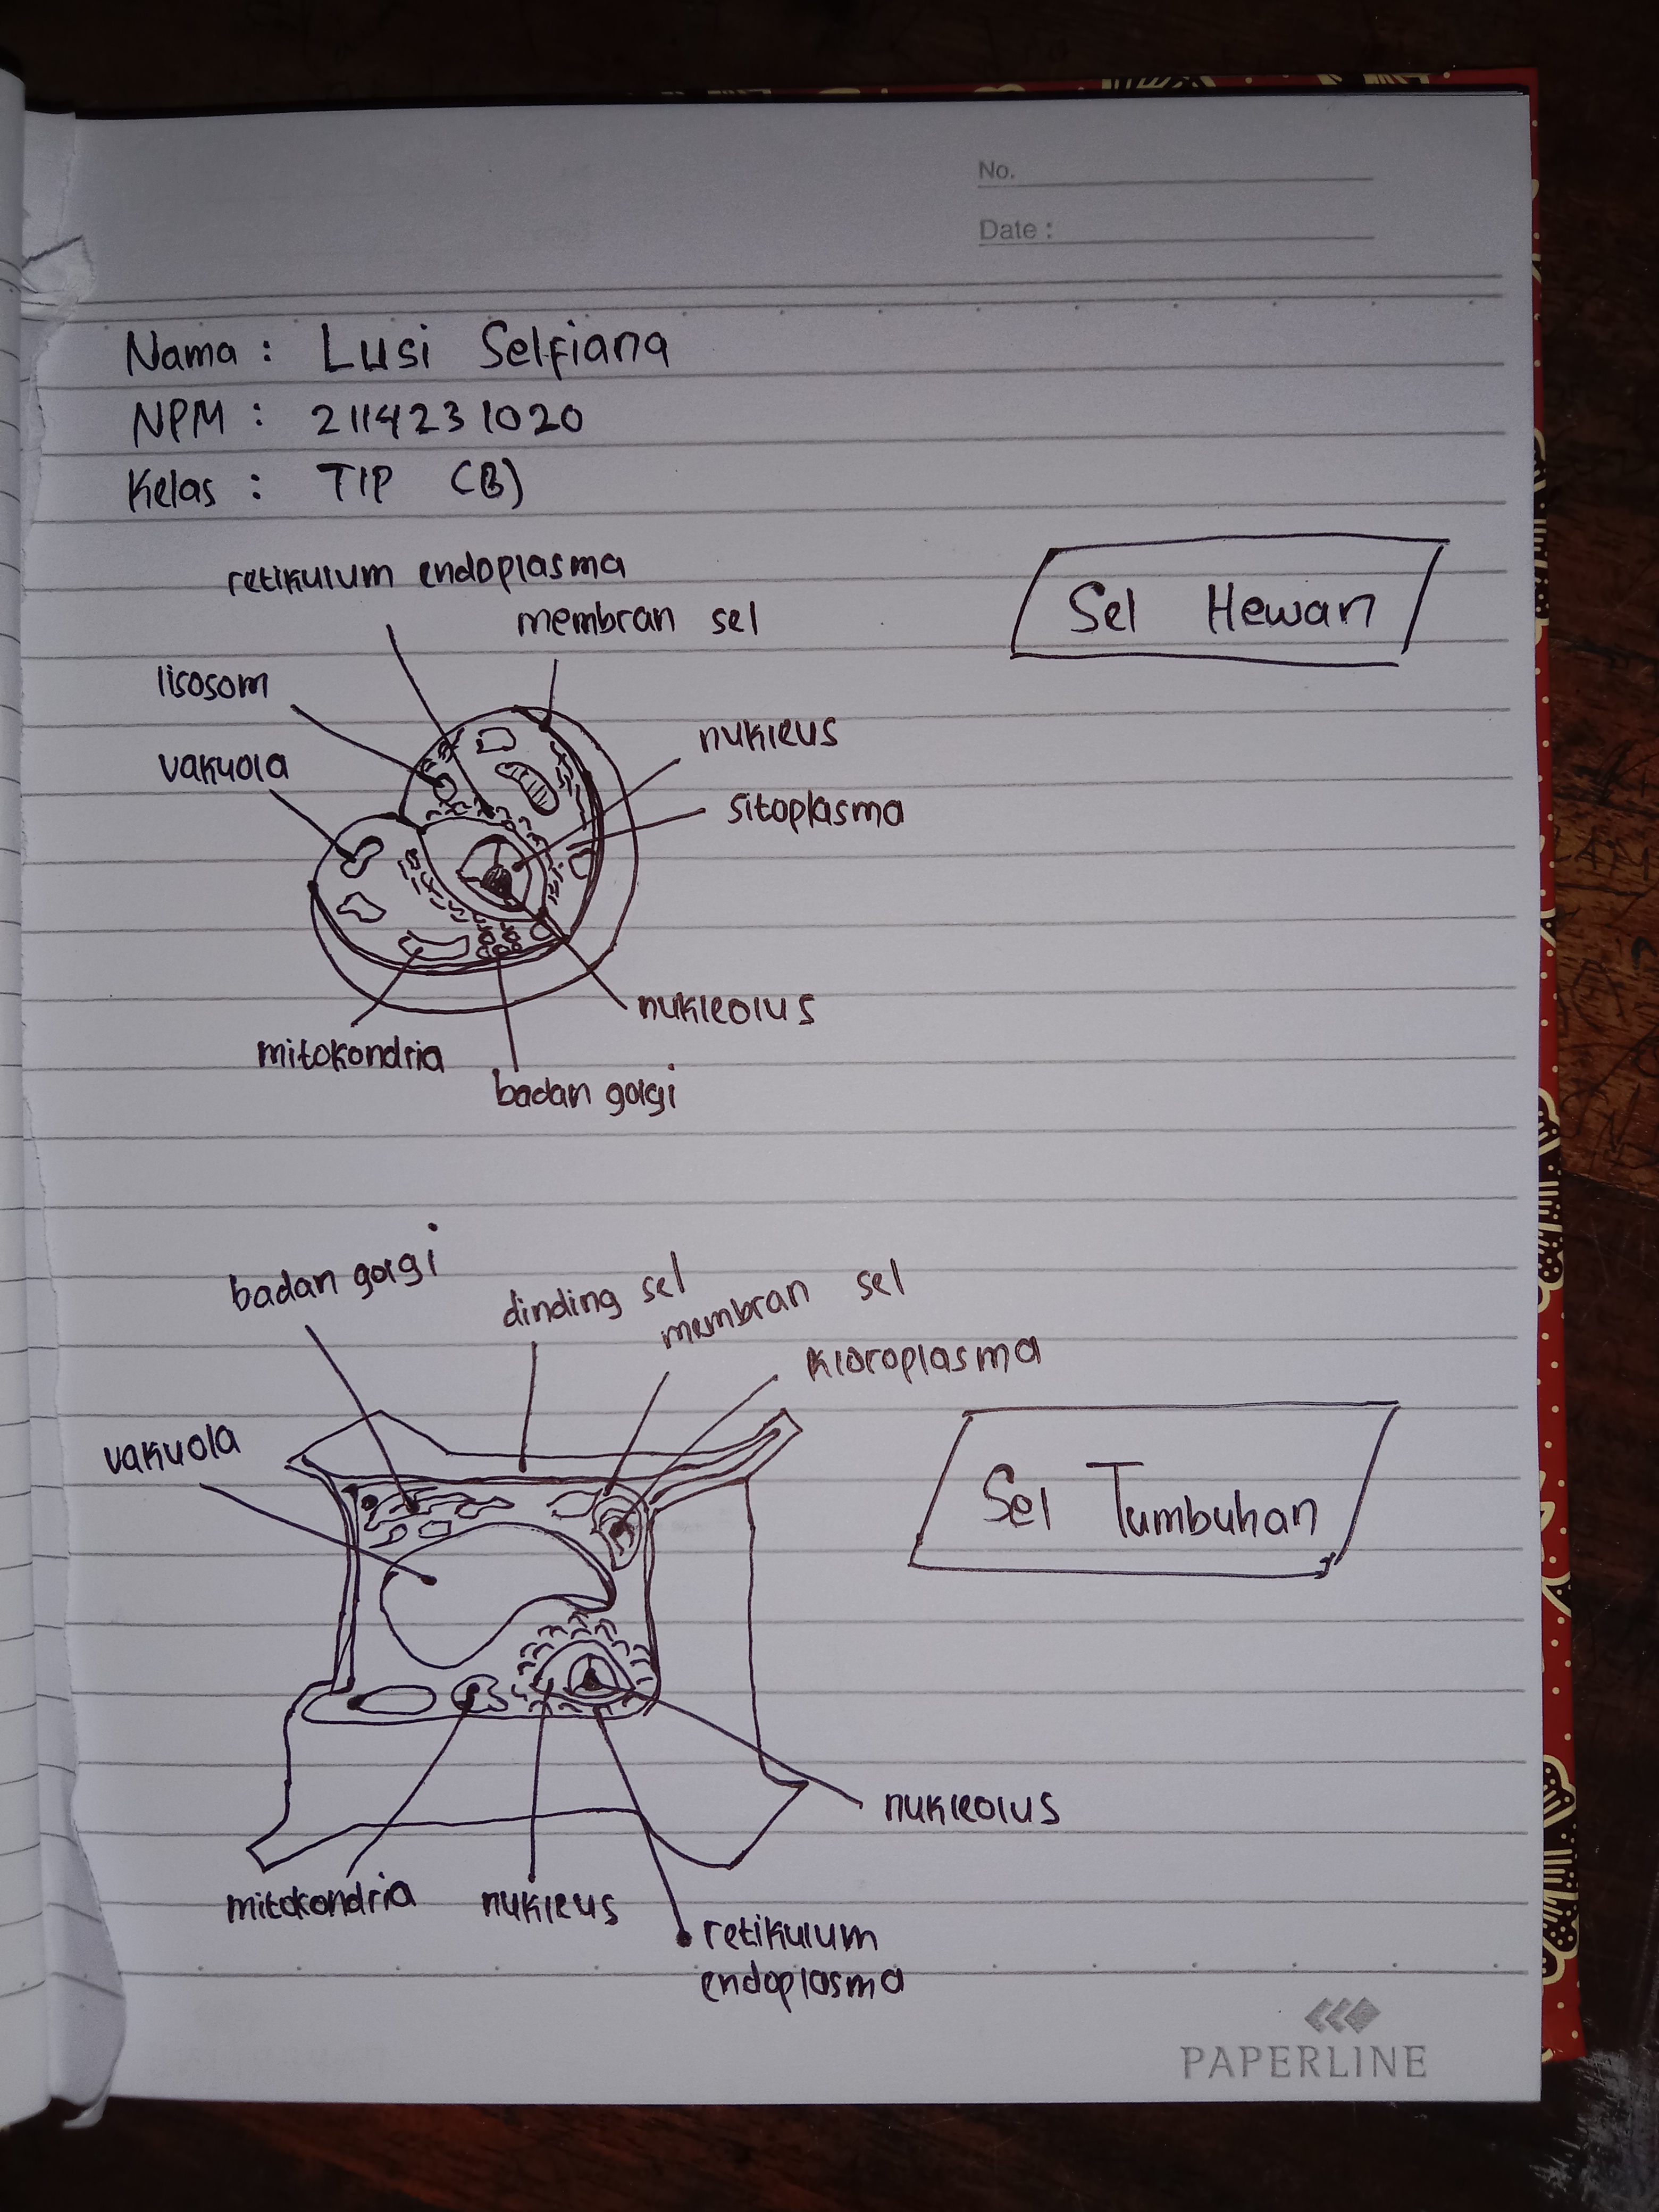 No.
Date :
Nama : Lusi Selfiana
NPM : 2114231020
Kelas : TIP (B)
retikulum endoplasma
membran sel
Sel Hewan
lisosom
nukleus
vakuola
sitoplasma
nukleolus
mitokondria
badan golgi
badan golgi
dinding sel
membran sel
kloroplasma
vakuola
Sel Tumbuhan
nukleolus
mitokondria
nukleus
retikulum
endoplasma
PAPERLINE